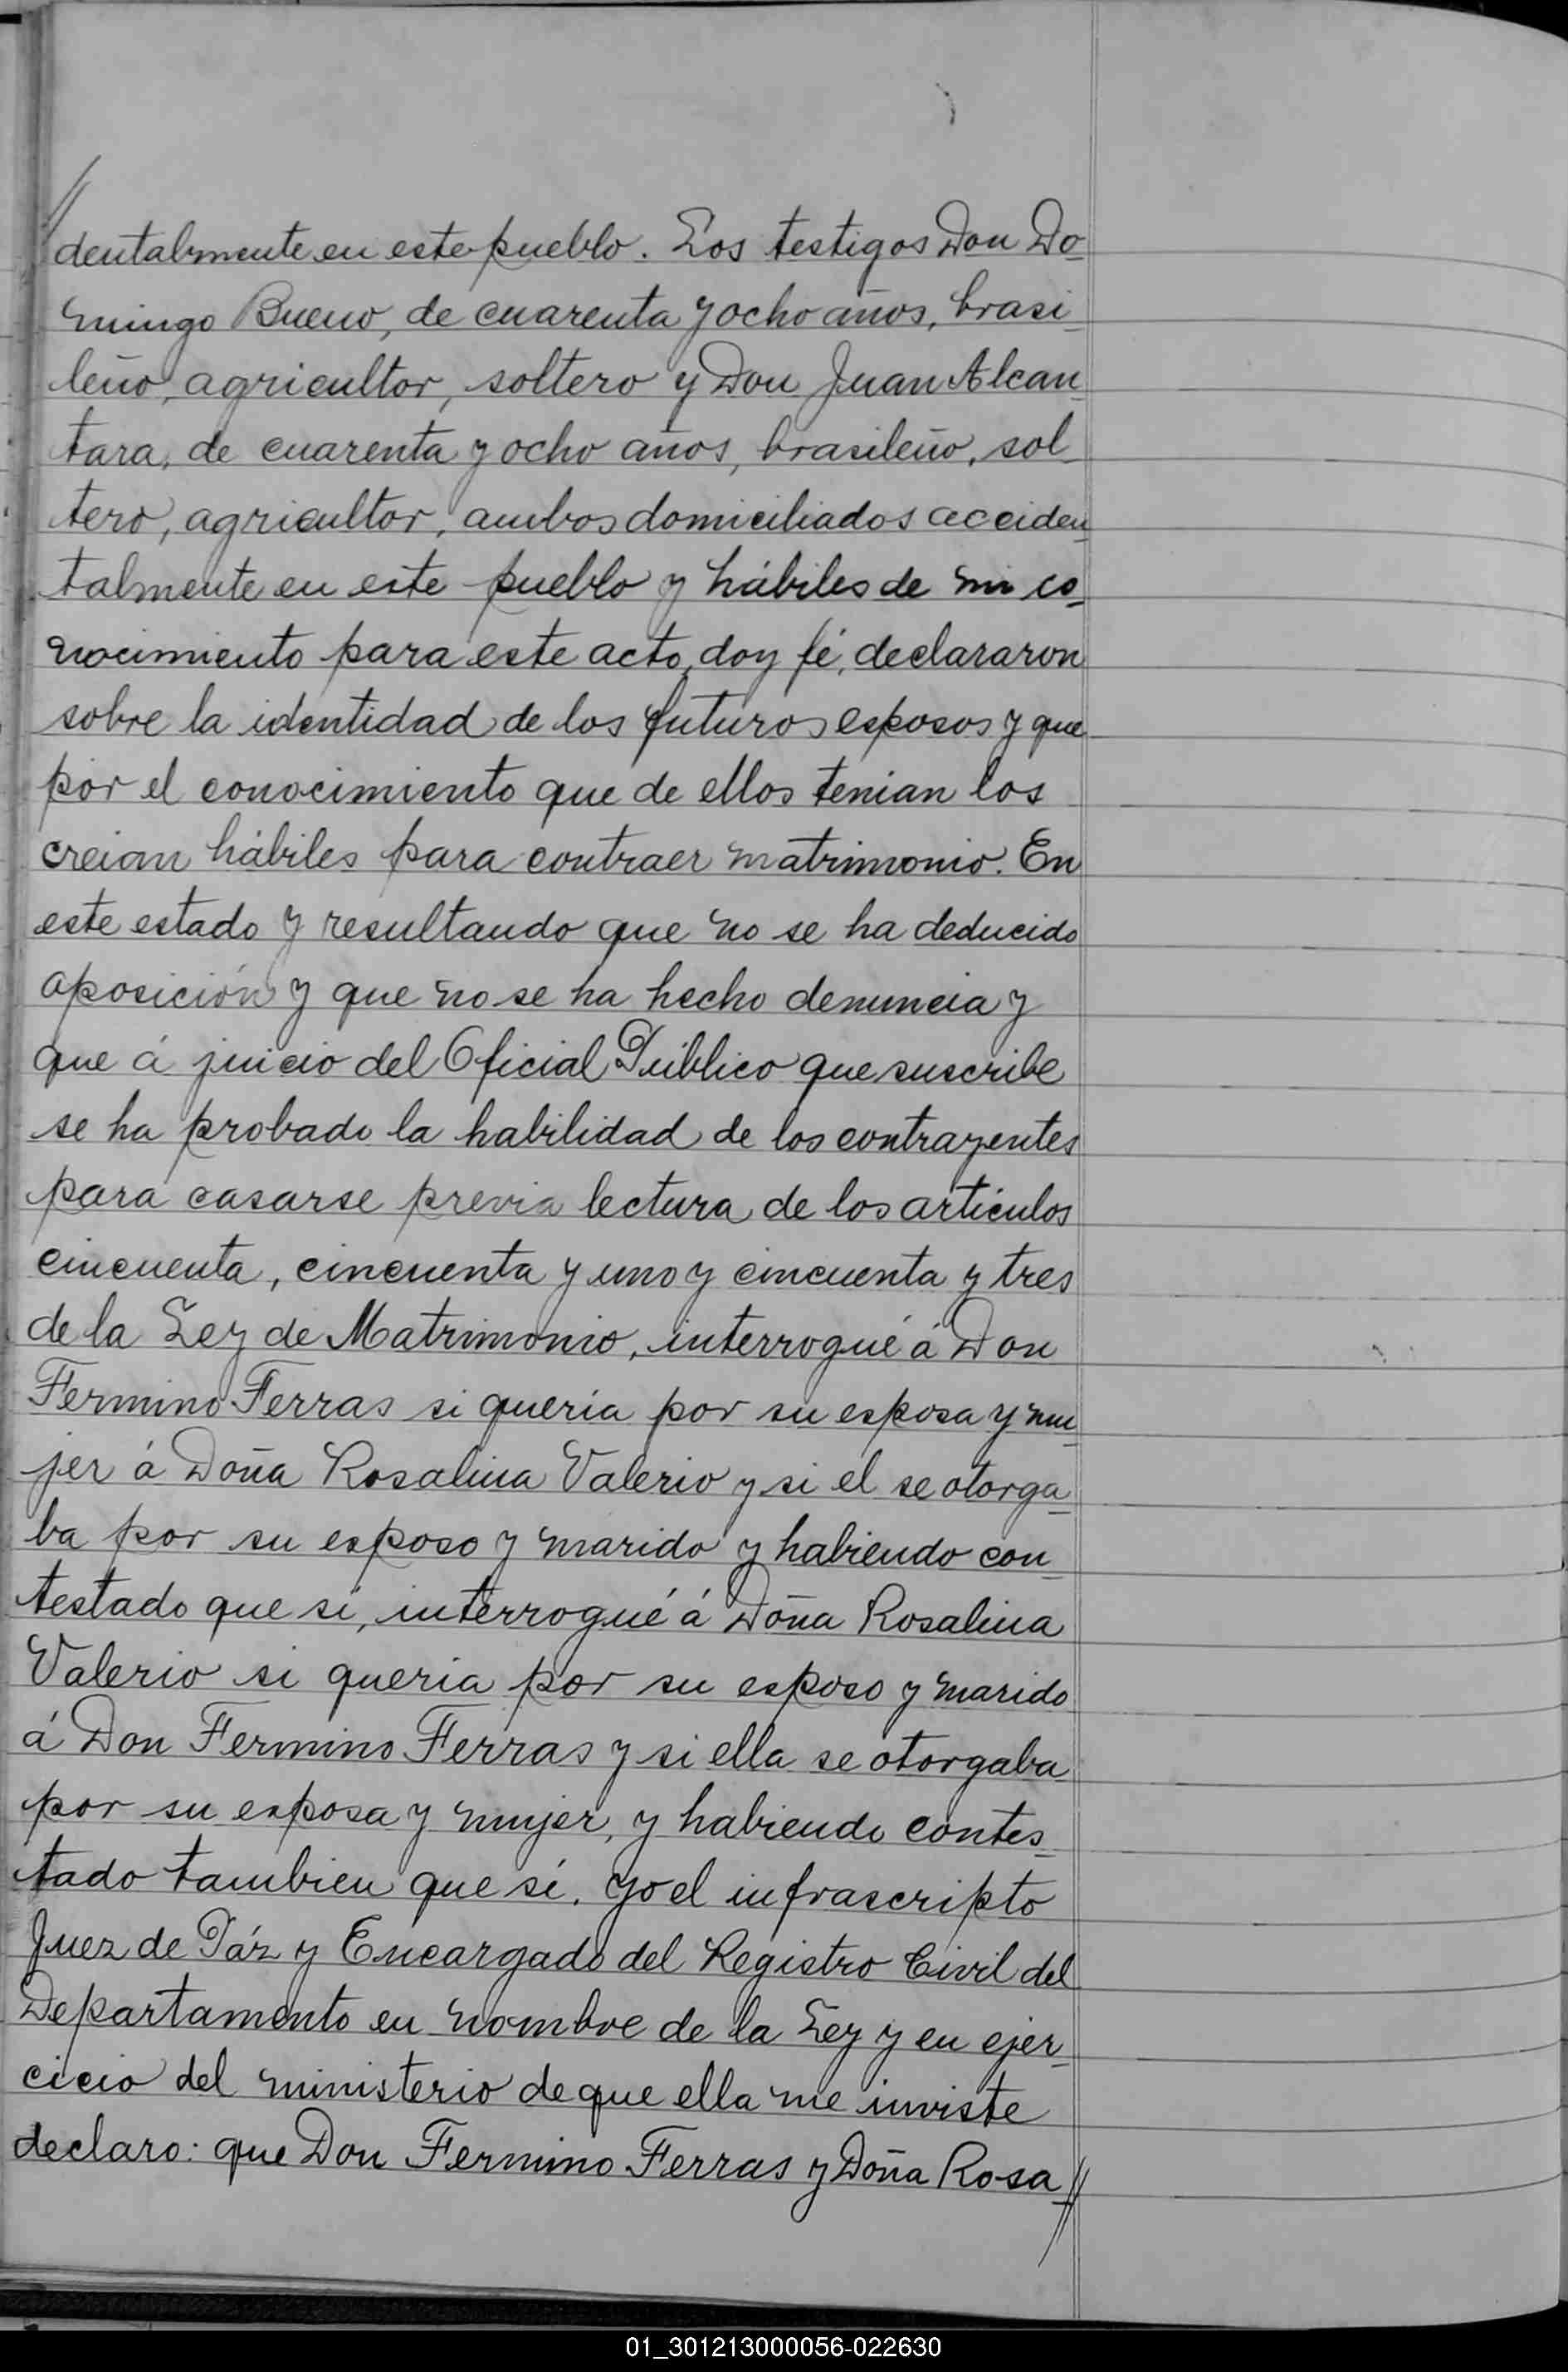 //
dentalmente en este pueblo. Los testigos Don Do_
mingo Bueno, de cuarenta y ocho años, brasi_
leño, agricultor, soltero y Don Juan Alcan_
tara, de cuarenta y ocho años, brasileño, sol_
tero, agricultor, ambos domiciliados acciden_
talmente en este pueblo y hábiles de mi co_
nocimiento para este acto, doy fé, declararon
sobre la identidad de los futuros esposos y que
por el conocimiento que de ellos tenian los
creian hábiles para contraer matrimonio. En
este estado y resultando que no se ha deducido
oposición y que no se ha hecho denuncia y
que á juicio del Oficial Público que suscribe
se ha probado la habilidad de los contrayentes
para casarse previa lectura de los artículos
cincuenta, cincuenta y uno y cincuenta y tres
de la Ley de Matrimonio, interrogué á Don
Fermino Ferras si quería por su esposa y mu_
jer á Doña Rosalina Valerio y si él se otorga_
ba por su esposo y marido y habiendo con_
testado que sí, interrogué á Doña Rosalina
Valerio si queria por su esposo y marido
á Don Fermino Ferras y si ella se otorgaba
por su esposa y mujer, y habiendo contes_
tado tambien que sí. Yo el infrascripto
Juez de Páz y Encargado del Registro Civil del
Departamento en nombre de la Ley y en ejer_
cicio del ministerio de que ella me inviste
declaro: que Don Fermino Ferras y Doña Rosa_//
01_301213000056-022630